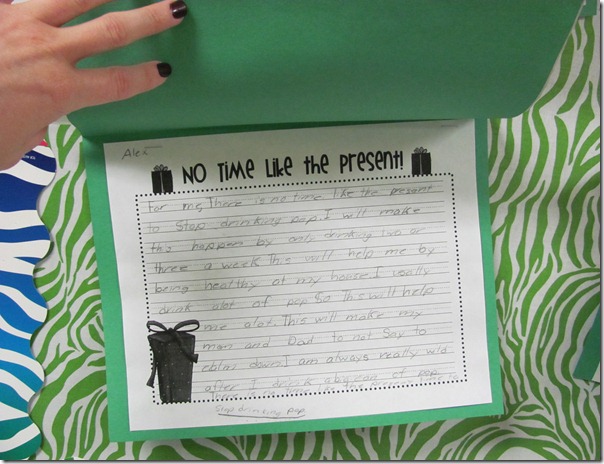 Alex
No Time Like the Present!
For me, There is no time like the present
to stop drinking pop. I will make
this happen by only drinking two or
three a week this will help me by
being healthy at my house. I usally
drink alot of pop so this will help
me alot. This will make my
mom and Dad to not Say to
calm down. I am always really wild
after I drink of pop
There is no time like the present like to
Stop drinking pop